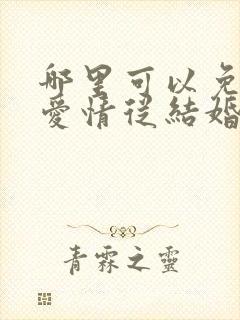 哪里可以免
愛情從結婚
青霖之靈